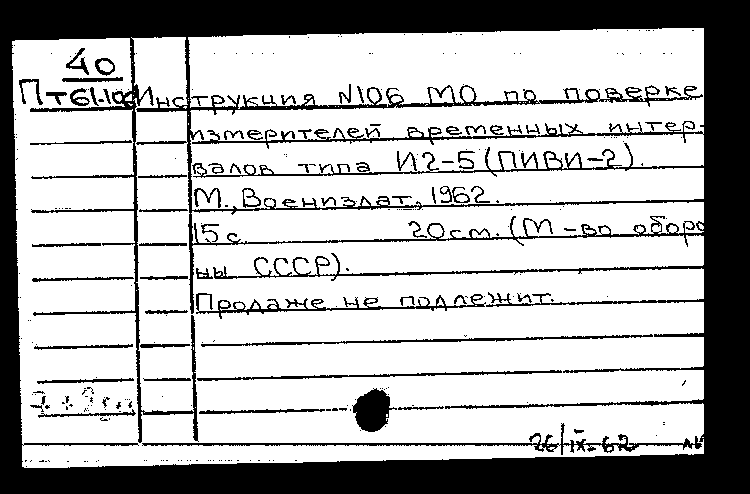 40
Пт61.106 Инструкция №106 МО по поверке
измерителей временных интер-
валов типа И2-5 (ПИВИ-2).
М., Воениздат, 1962.
15 с. 20 см. (М-во оборо
ны СССР).
Продаже не подлежит.
26/IX-62